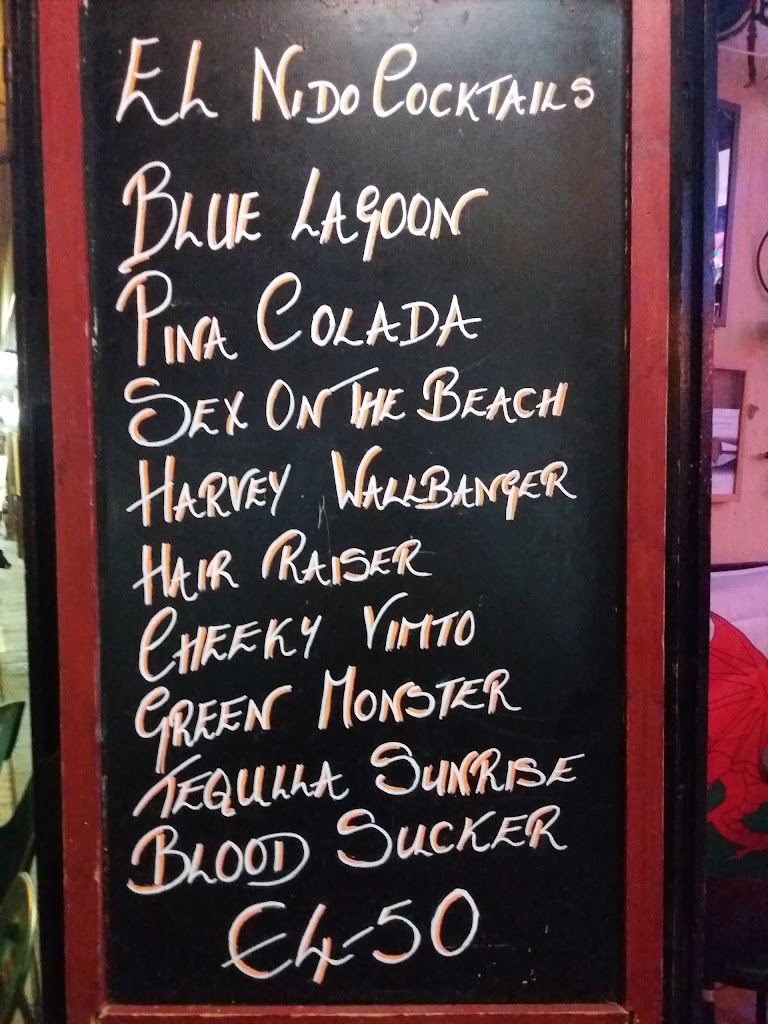 EL NIDO COCKTAILS
BLUE LAGOON
PINA COLADA
SEX ON THE BEACH
HARVEY WALLBANGER
HAIR RAISER
CHEEKY VIMTO
GREEN MONSTER
TEQUILLA SUNRISE
BLOOD SUCKER
€4-50